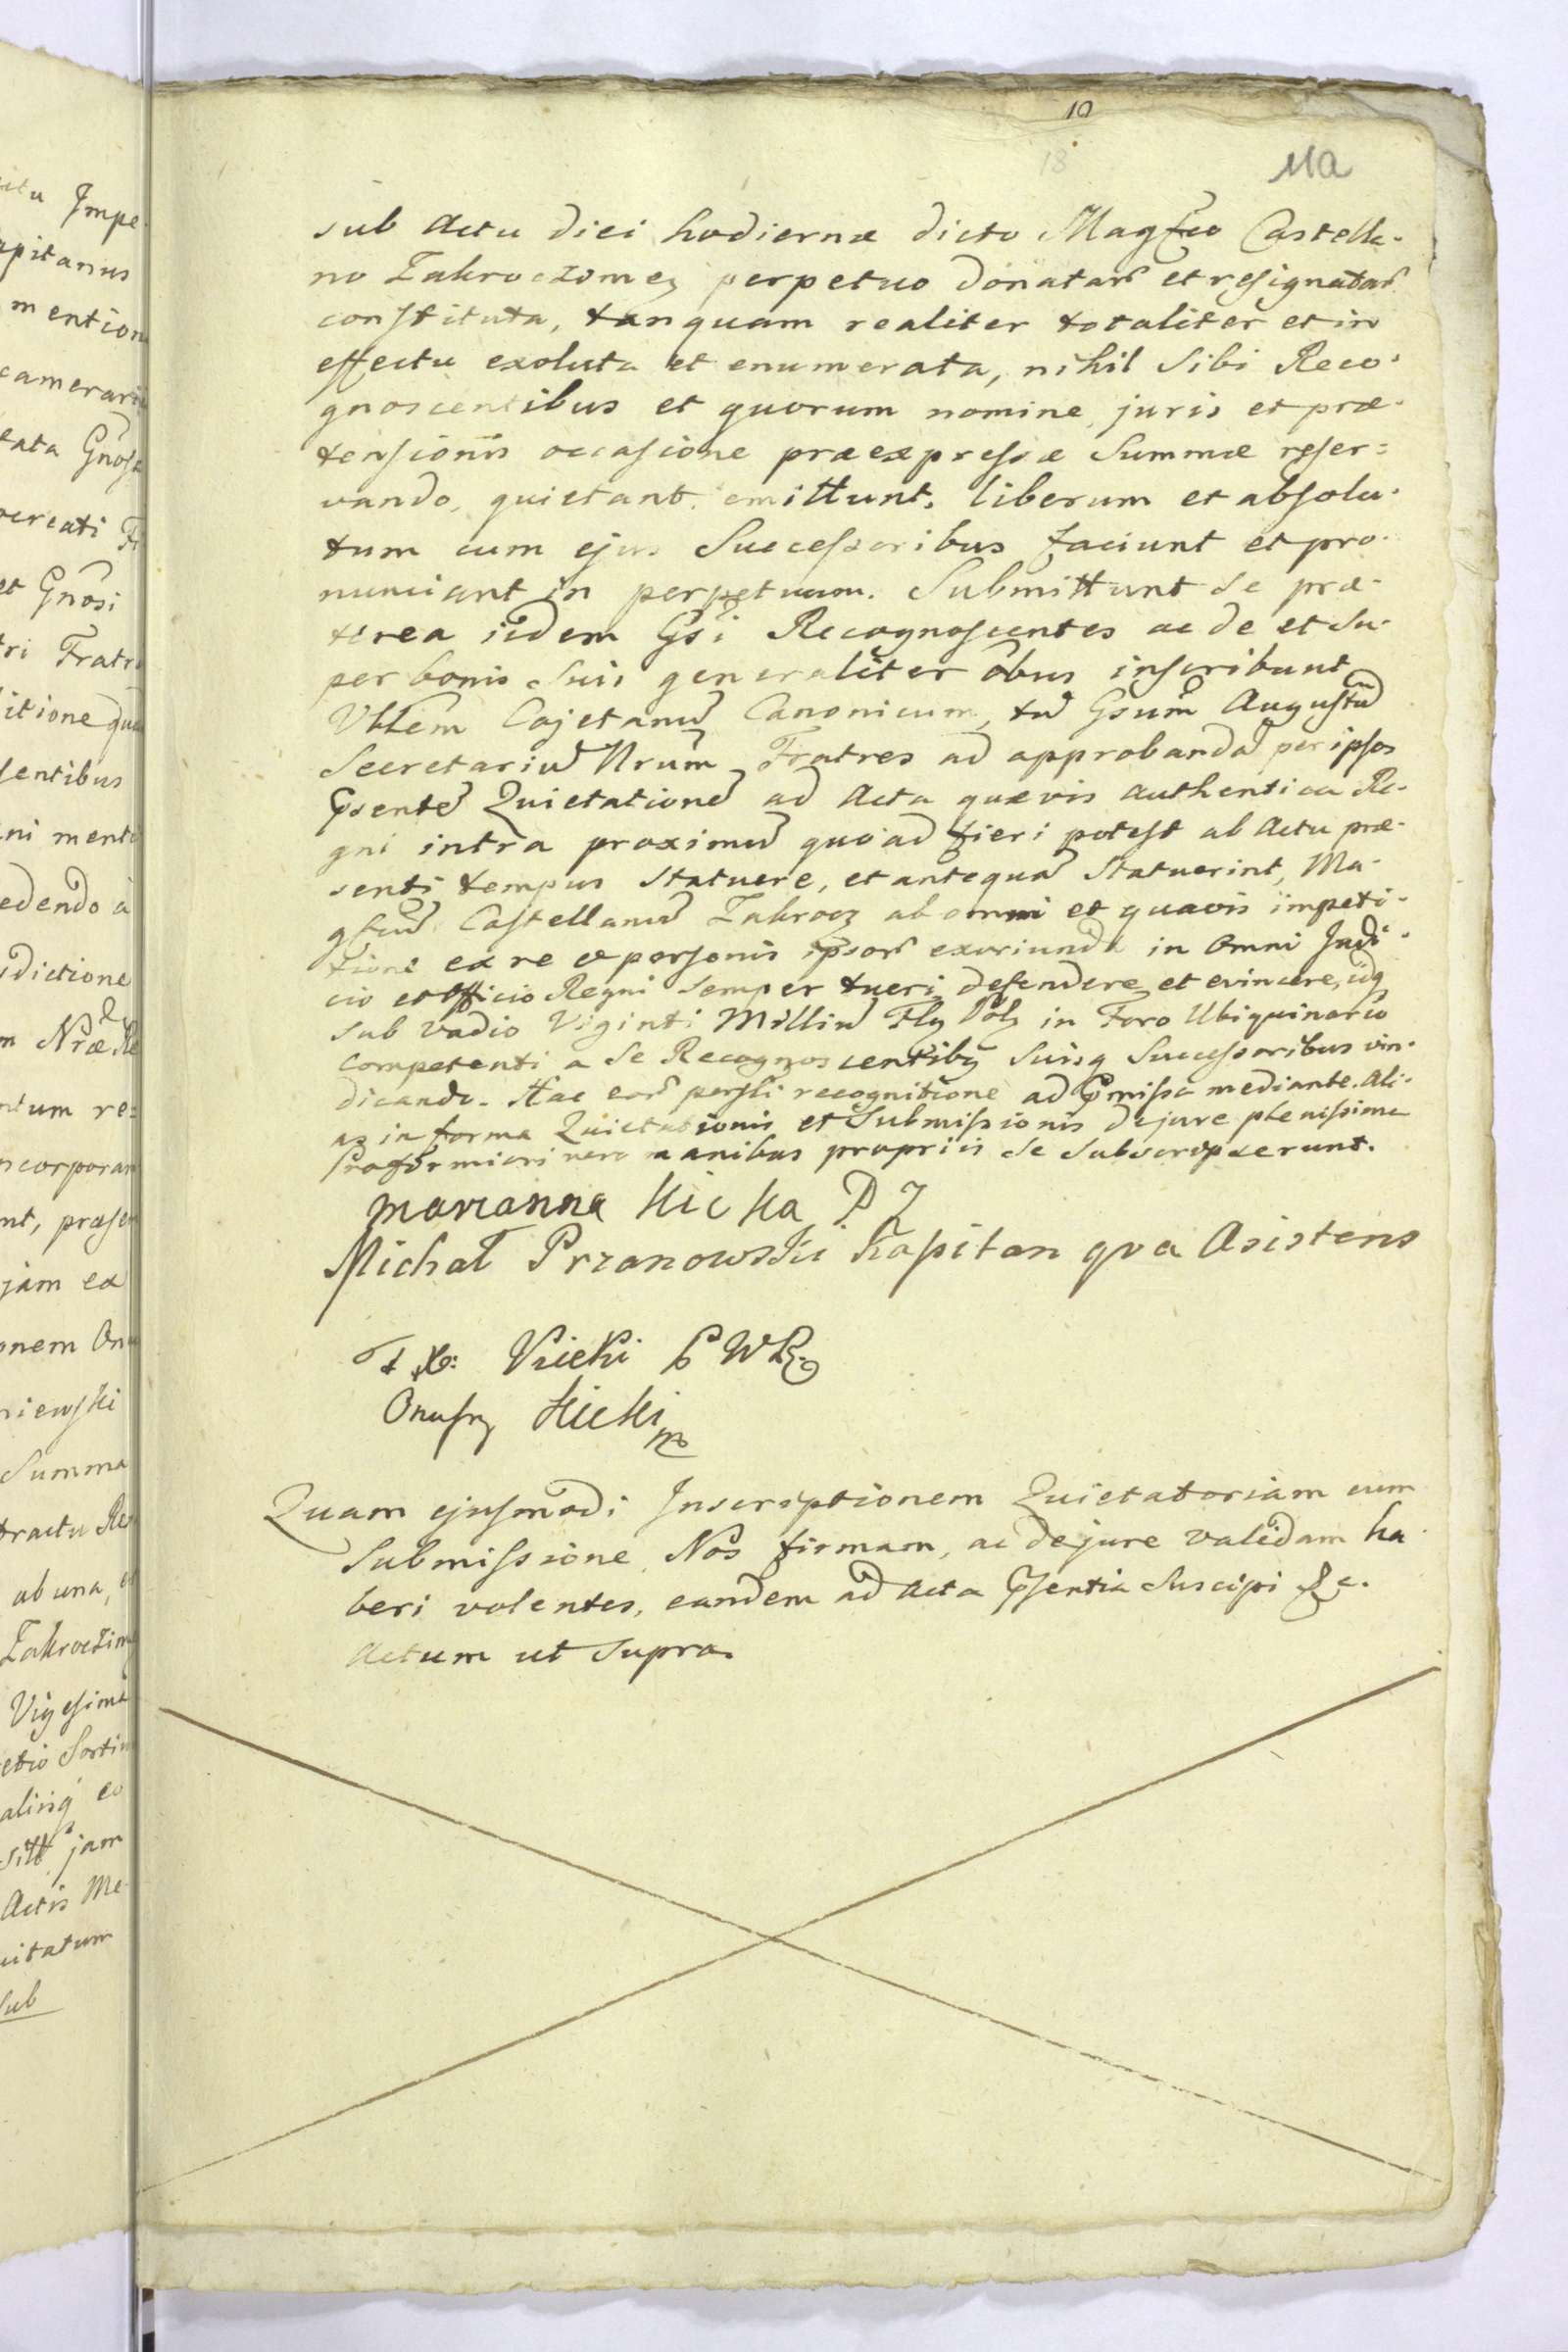 10
18
11a
sub Actu diei hodiernæ dicto Magfco Castella-
no Zakroczymeẓ perpetuo donatar̃ et resignatar̃
constituta, tanquam realiter totaliter et in
effectu exoluta et enumerata, nihil Sibi Reco-
gnoscentibus et quorum nomine juris et præ-
tensionis occasione præexpressæ Summæ reser=
vando, quietant emittunt, liberum et absolu-
tum cum ejus Successoribus faciunt et pro-
nunciant in perpetuum. Submittunt Se præ-
terea iidem Gsi Recognoscentes ac de et Su-
per bonis Suis generaliter õbus inscribunt
Vblem Cajetanũ Canonicum, tũ Gsum Augustũ
Secretariũ Nrum Fratres ad approbandã per ipsos
Psentẽ Quietationẽ ad Acta quævis authentica Re-
gni intra proximũ quoad fieri potest ab Actu præ-
senti tempus Statuere, et antequã Statuerint, Ma-
gfcũ Castellanũ Zakrocz ab omni et quavis impeti-
tione ex re et personis ipsor̃ exoriunda in Omni Judi-
cio et Officio Regni Semper tueri defendere et evincere, idq
Sub Vadio Viginti Milliũ Flẓ Polẓ in Foro Ubiquinario
Competenti a Se Recognoscentibq Suisq Successoribus vin-
dicando. Hac eor̃ persli recognitione ad Pmissa mediante. Ali-
as in forma Quietationis et Submissionis de jure plenissima
Pro firmiori vero manibus propriis Se Subscripserunt.
Marianna Kicka P Z
Michał Przanowski Kapitan qva Asistens
Kicki
Onufry Kicki mp
Quam ejusmodi Inscriptionem Quietatoriam cum
Submissione Nos firmam, ac de jure validam ha
beri volentes, eandem ad Acta Psentia Suscipi &c.
Actum ut Supra.
Impe
apitanus
mention
camerari
tata Gnosa
et Gnosi
tri Fratri
itione
sentibus
edendo a
dictione
m Nræ
ntum re=
ncorporar
nt, præsen
jam ex
onem
niewski
Summa
tractu Re
ab una,
Zakroczim
Vigesima
etio Sortiu
jam
Actis Me
uitatum
Sub